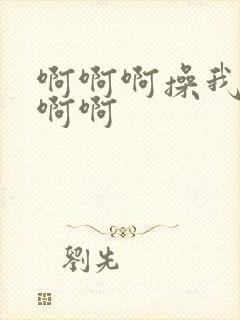 啊啊啊操我
啊啊
劉先